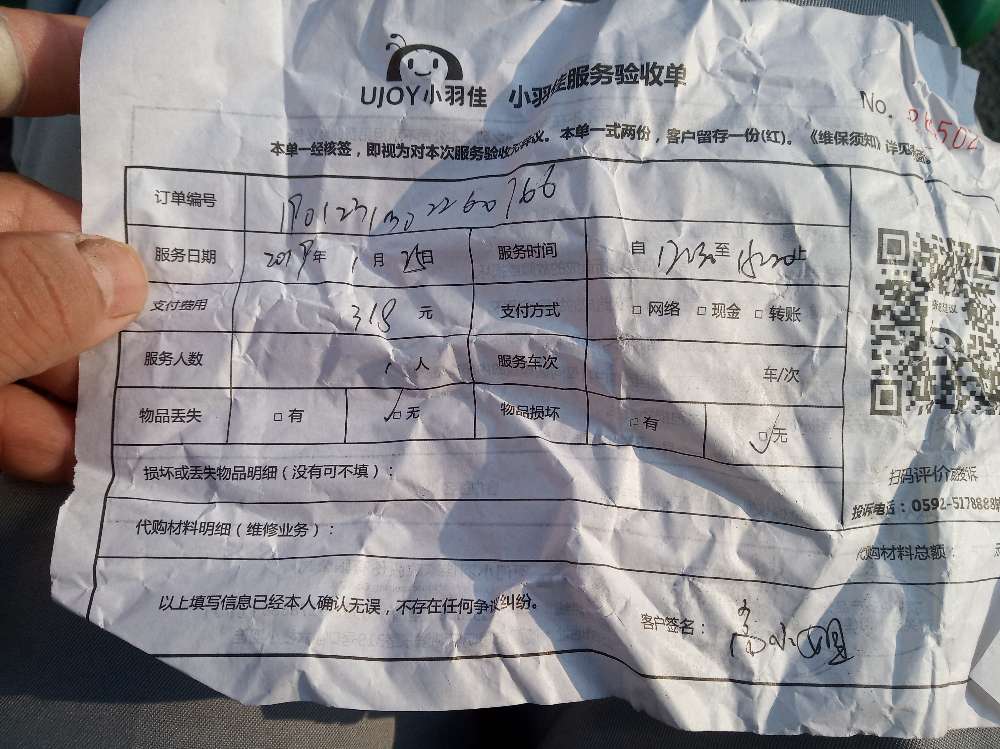 UJOY小羽佳 小羽佳服务验收单
No.
本单一经核签，即视为对本次服务验收无异议。本单一式两份，客户留存一份(红)。《维保须知》详见
订单编号
服务日期 2019年 1月 25日 服务时间 自 至 止
支付费用 318 元 支付方式 □网络 □现金 □转账
服务人数 1 人 服务车次 车/次
物品丢失 □有 ☑无 物品损坏 □有 ☑无
损坏或丢失物品明细（没有可不填）：
扫码评价或投诉
投诉电话：0592-5178888
代购材料明细（维修业务）：
代购材料总额：
以上填写信息已经本人确认无误，不存在任何争议纠纷。
客户签名：